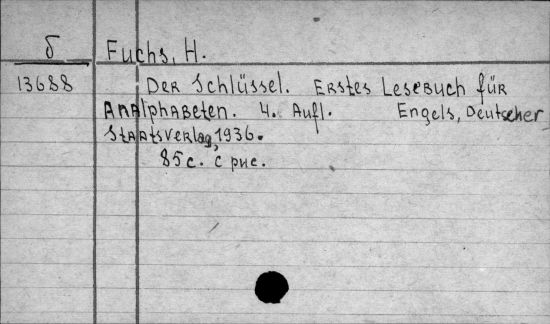 б
Fuchs, H.
13688
Der Schlüssel. Erstes Lesebuch für
Analphabeten. 4. Aufl. Engels, Deutscher
Staatsverlag, 1936.
85 с. с рис.